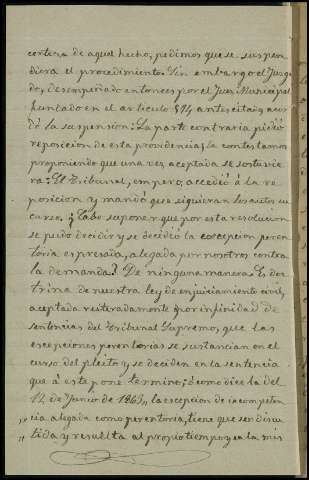 certeza de aquel hecho, pedimos que se suspen
diera el procedimiento. Sin embargo el Juzga
do, desempeñado entonces por el Juez Municipal
fundado en el artículo 514 antes citado, acor
dó la suspensión: La parte contraria pidió
reposición de esta providencia, la contestamos
proponiendo que una vez aceptada se sostuvie
ra: El Tribunal, empero, accedió á la re
posición y mandó que siguieran los autos su
curso. ¿Cabe suponer que por esta resolución
se pudo decidir y se decidió la excepción peren
toria expresada, alegada por nosotros contra
la demanda? De ninguna manera. Es doc
trina de nuestra ley de enjuiciamiento civil,
aceptada reiteradamente por infinidad de
sentencias del Tribunal Supremo, que las
excepciones perentorias se sustancian en el
curso del pleito y se deciden en la sentencia
que á este pone termino; ó como dice la del
12 de Junio de 1863, la excepcion de incompeten
„ cia alegada como perentoria, tiene que ser discu
„ tida y resuelta al propio tiempo y en la mis